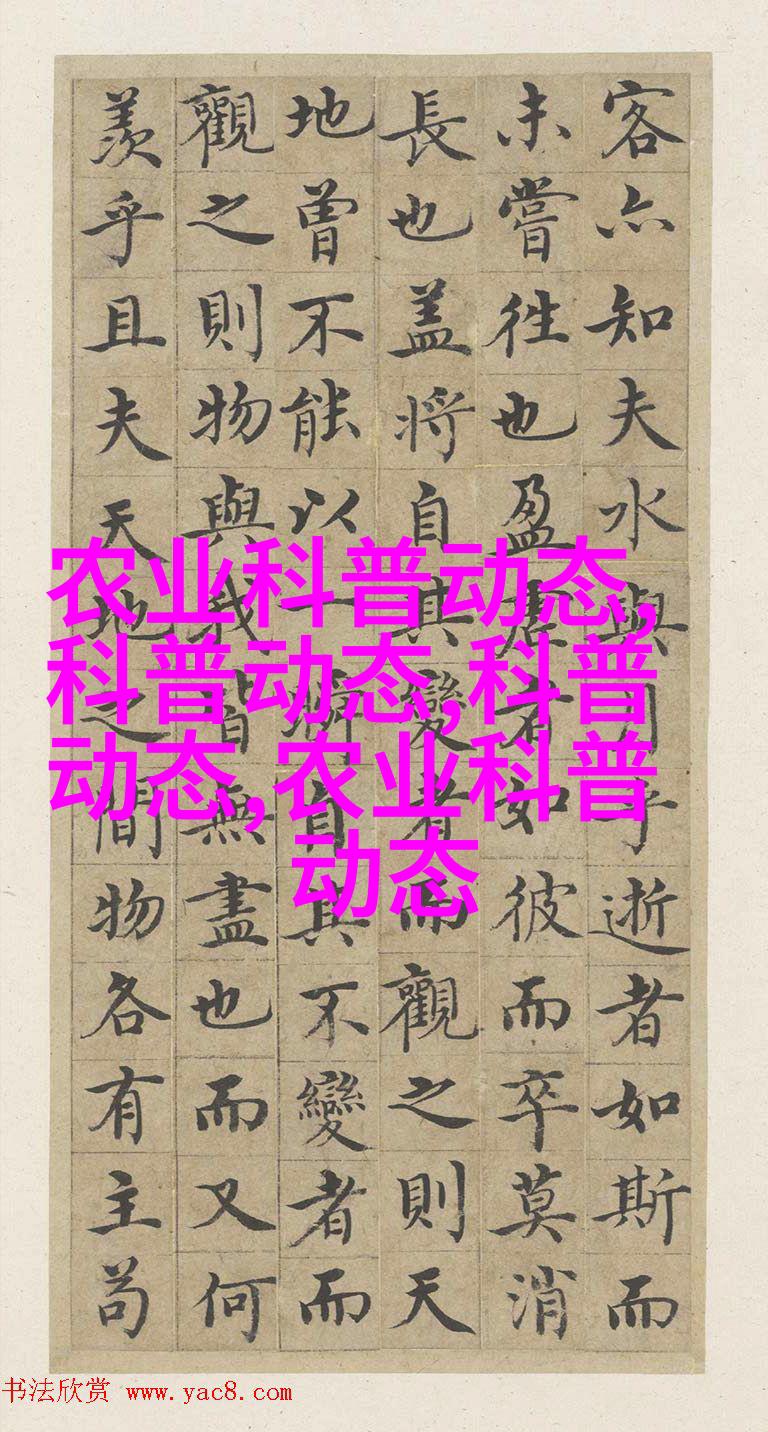 客亦知夫水與月乎逝者如斯而
未嘗往也盈虛者如彼而卒莫消
長也盖將自其變者而觀之則天
地曾不能以一瞬自其不變者而
觀之則物與我皆無盡也而又何
羨乎且夫天地之間物各有主苟
农业科普动态,
科普动态,科普
动态,农业科普
动态
书法欣赏 www.yac8.com